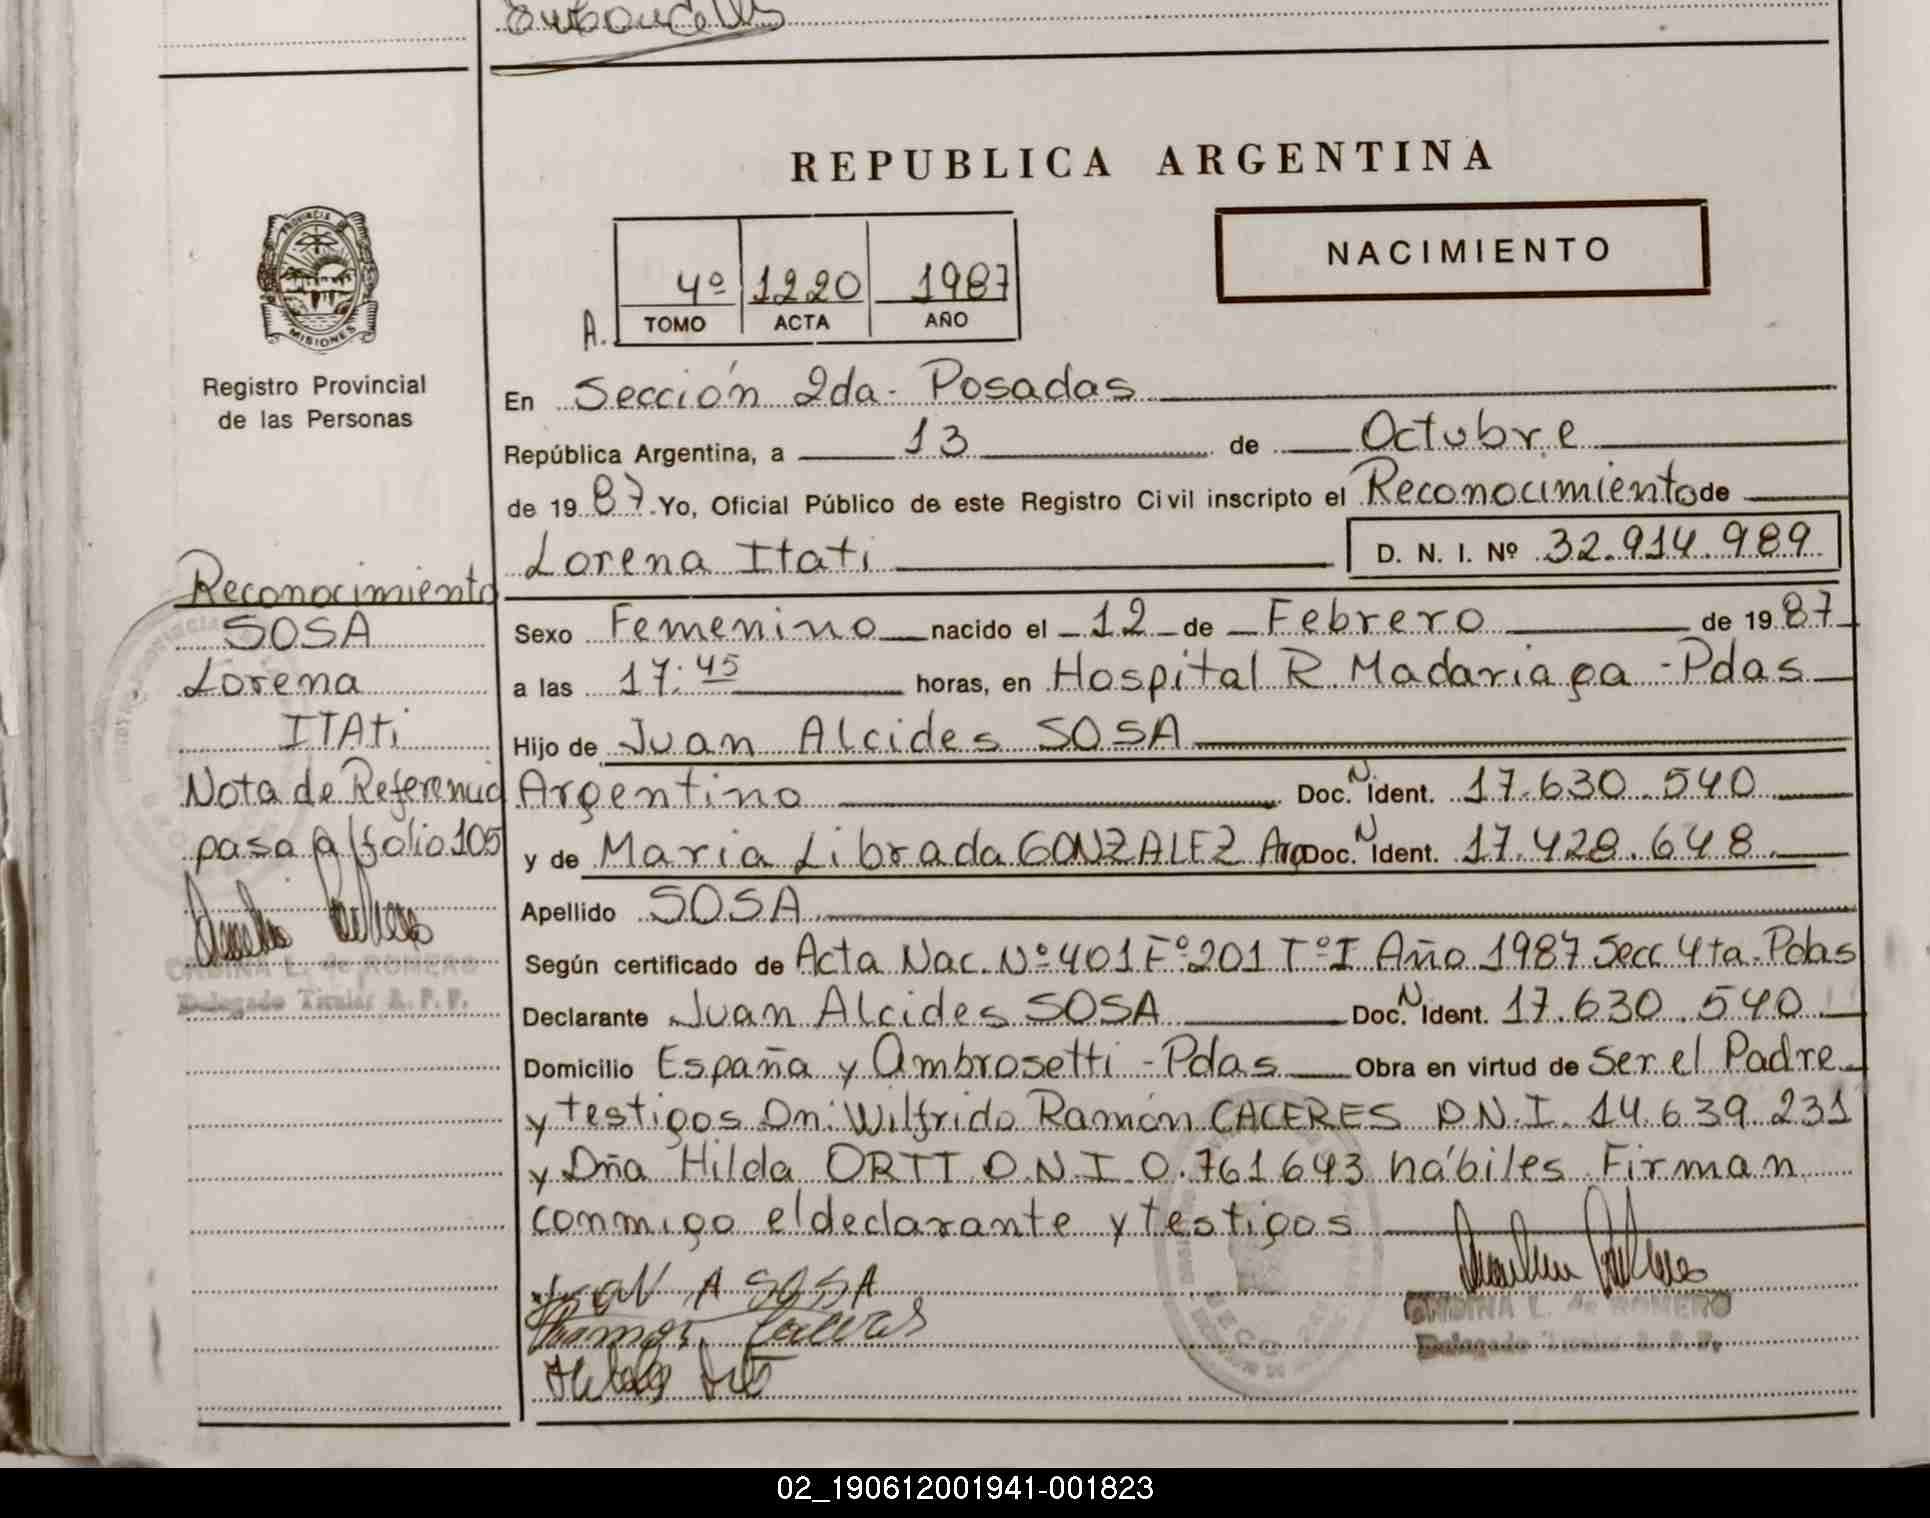 REPUBLICA ARGENTINA
NACIMIENTO
4º 1220 1987
A. TOMO ACTA AÑO
PROVINCIA DE MISIONES
Registro Provincial
de las Personas
En Sección 2da - Posadas
República Argentina, a 13 de Octubre
de 1987. Yo, Oficial Público de este Registro Civil inscripto el Reconocimiento de
Lorena Itati D. N. I. Nº 32.914.989
Sexo Femenino nacido el 12 de Febrero de 1987
a las 17:45 horas, en Hospital R. Madariaga - Pdas
Hijo de Juan Alcides SOSA
Argentino Doc. N Ident. 17.630.540
y de Maria Librada GONZALEZ Arg Doc. N Ident. 17.428.648
Apellido SOSA
Según certificado de Acta Nac. Nº 401 Fº 201 Tº I Año 1987 Secc 4ta - Pdas
Declarante Juan Alcides SOSA Doc. N Ident. 17.630.540
Domicilio España y Ambrosetti - Pdas Obra en virtud de Ser el Padre
y testigos Dn: Wilfrido Ramón CACERES D.N.I. 14.639.231
y Dña Hilda ORTT D.N.I 0.761.643 hábiles. Firman
conmigo el declarante y testigos
Juan A SOSA
Reconocimiento
SOSA
Lorena
ITATi
Nota de Referencia
pasa al folio 105
ONDINA L. de ROMERO
Delegado Titular R. P. P.
ONDINA L. de ROMERO
Delegado Titular R. P. P.
02_190612001941-001823